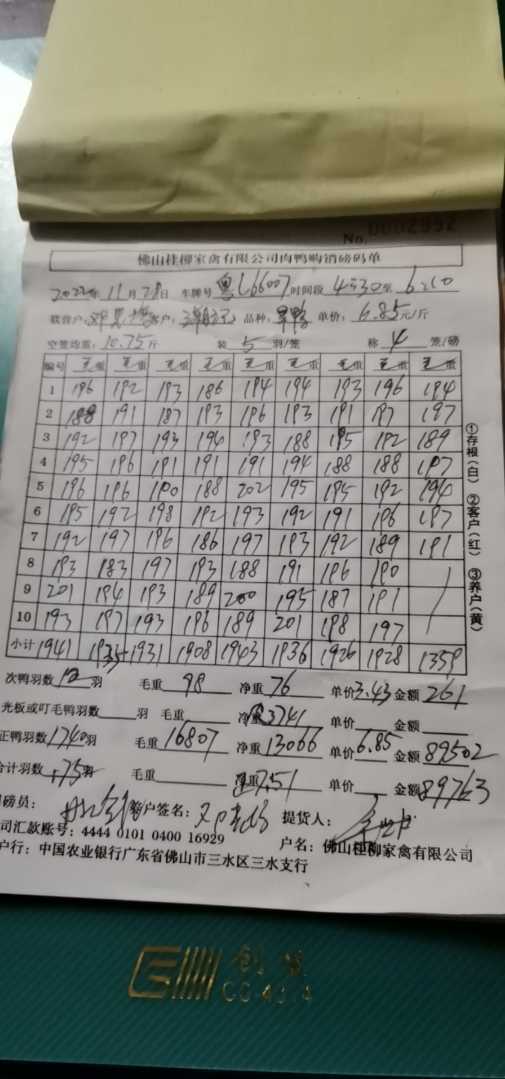 No. 0002992
佛山桂柳家禽有限公司肉鸭购销磅码单
2022年 11月78日 车牌号 粤L66007 时间段 4:30至 6:10
联营户: 客户: 品种: 单价: 6.85元/斤
空笼均重: 10.75斤 装 5 羽/笼 称 4 笼/磅
编号 毛重 毛重 毛重 毛重 毛重 毛重 毛重 毛重 毛重
1 196 192 193 186 194 194 193 196 194
2 188 191 187 193 196 193 191 197 197
3 192 197 193 190 193 188 195 192 189
4 195 196 191 191 191 194 188 188 197
5 196 196 190 188 202 195 195 192 194
6 195 192 198 192 193 192 191 196 197
7 192 197 196 186 197 193 192 189 191
8 193 183 197 193 188 191 196 190
9 201 194 193 189 200 195 187 191
10 193 197 193 196 189 201 198 197
小计 1941 1935 1931 1908 1943 1936 1926 1928 1359
①存根(白) ②客户(红) ③养户(黄)
次鸭羽数 12 羽 毛重 98 净重 76 单价 3.43 金额 261
光板或叮毛鸭羽数 羽 毛重 净重 3741 单价 金额
正鸭羽数 1740羽 毛重 16807 净重 13066 单价 6.85 金额 89502
合计羽数 +75羽 毛重 净重 7.51 单价 金额 89763
磅员: 客户签名: 提货人:
司汇款账号: 4444 0101 0400 16929 户名: 佛山桂柳家禽有限公司
户行: 中国农业银行广东省佛山市三水区三水支行